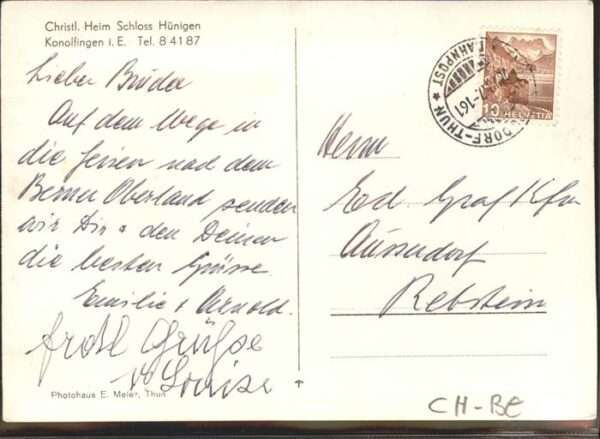 Christl. Heim Schloss Hünigen
Konolfingen i. E. Tel. 8 41 87
Lieber Bruder
Auf dem Wege in
die Ferien nach dem
Berner Oberland senden
wir Dir & den Deinen
die besten Grüsse.
Emilie & Arnold.
frdl Grüsse
v Louise
Photohaus E. Meier, Thun
BAHNPOST
DORF-THUN
10
HELVETIA
Herrn
Ed. Graf
Ausserdorf
Rebstein
CH-BE